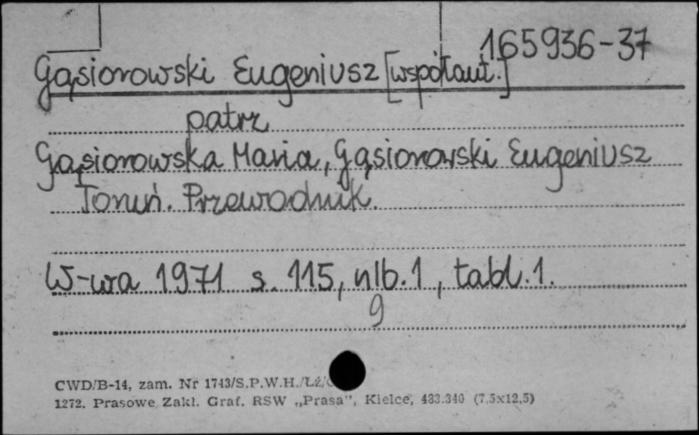 165936-37
Gąsiorowski Eugeniusz [współaut.]
patrz
Gąsiorowska Maria, Gąsiorowski Eugeniusz
Toruń. Przewodnik.
W-wa 1971 s. 115, nlb. 1, tabl. 1.
9
CWD/B-14, zam. Nr 1743/S.P.W.H./Łź/
1272. Prasowe Zakł. Graf. RSW „Prasa", Kielce, 483.340 (7,5x12,5)